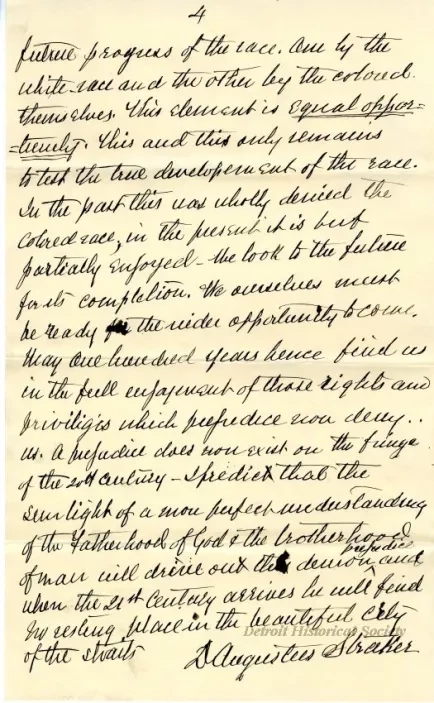 4
future progress of the race. One by the
white race and the other by the colored
themselves. This element is equal oppor=
=tunity. This and this only remains
to test the true developement of the race.
In the past this was wholly denied the
Colored race, in the present it is but
partially enjoyed - We look to the future
for its completion. We ourselves must
be ready for the wider opportunity to come.
May one hundred years hence find us
in the full enjoyment of those rights and
priviliges which prejudice now deny..
us. A prejudice does now exist on the fringe
of the 20th century - I predict that the
sunlight of a more perfect understanding
of the Fatherhood of God & the brotherhood
of man will drive out the demon prejudice and
when the 21st Century arrives he will find
no resting place in the beautiful city
of the straits
D Augustus Straker
Detroit Historical Society